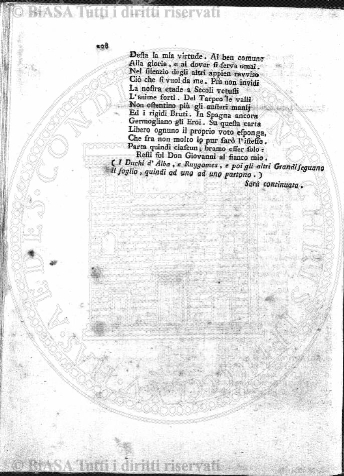 © BIASA Tutti i diritti riservati
208
Desta la mia virtude. Al ben comune
Alla gloria, e al dover si serva omai.
Nel silenzio degli altri appien ravviso
Ciò che si vuol da me. Più non invidj
La nostra etade a Secoli vetusti
L'anime forti. Del Tarpeo le valli
Non ostentino più gli austeri manlj
Ed i rigidi Bruti. In Spagna ancora
Germogliano gli Eroi. Su questa carta
Libero ognuno il proprio voto esponga,
Che fra non molto io pur farò l'istesso.
Parta quindi ciascun; bramo esser solo:
Resti sol Don Giovanni al fianco mio.
( I Duchi d'Alba, e Ruygomes, e poi gli altri Grandi segnano
il foglio, quindi ad uno ad uno partono. )
Sarà continuata.
© BIASA Tutti i diritti riservati